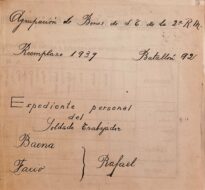 Agrupación de Bones. de S.T. de la 2ª R.M.
Reemplazo 1937 Batallón 92
Expediente personal
del
Soldado Trabajador
Baena
Fauro
Rafael